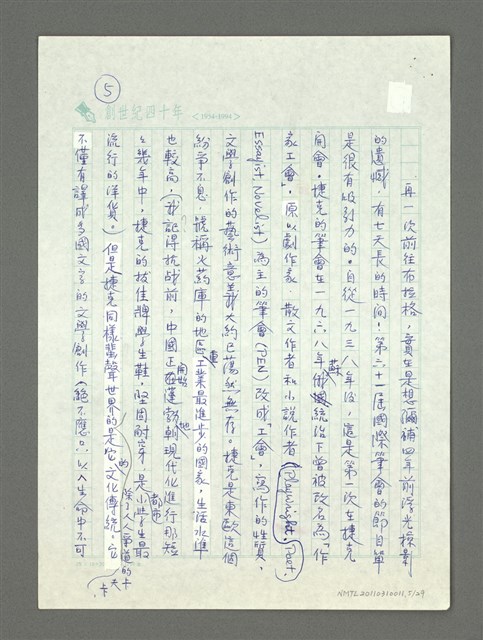 5
創世紀四十年 <1954-1994>
再一次前往布拉格，實在是想彌補四年前浮光掠影
的遺憾。有七天長的時間！第六十一屆國際筆會的節目單
是很有吸引力的。自從一九三八年後，這是第一次在捷克
開會。捷克的筆會在一九六八年蘇俄統治下曾被改名為「作
家工會」，原以劇作家、散文作者和小說作者（Playwright, Poet,
Essayist, Novelist）為主的筆會（PEN）改成「工會」，寫作的性質，
文學創作的藝術意義大約已蕩然無存。捷克是東歐這個
紛爭不息，號稱火藥庫的地區工業最進步的國家，生活水準
也較高，（我記得抗战前，中國正開始蓬勃地朝現代化進行那短
短幾年中，捷克的拔佳牌學生鞋，堅固耐穿，是都市小學生最
流行的洋貨。）但是捷克同樣蜚聲世界的是它的文化傳統。它
除人人爭道的卡夫卡，
不僅有譯成多國文字的文學創作（絕不應只以人生命中不可
NMTL20110310011, 5/29